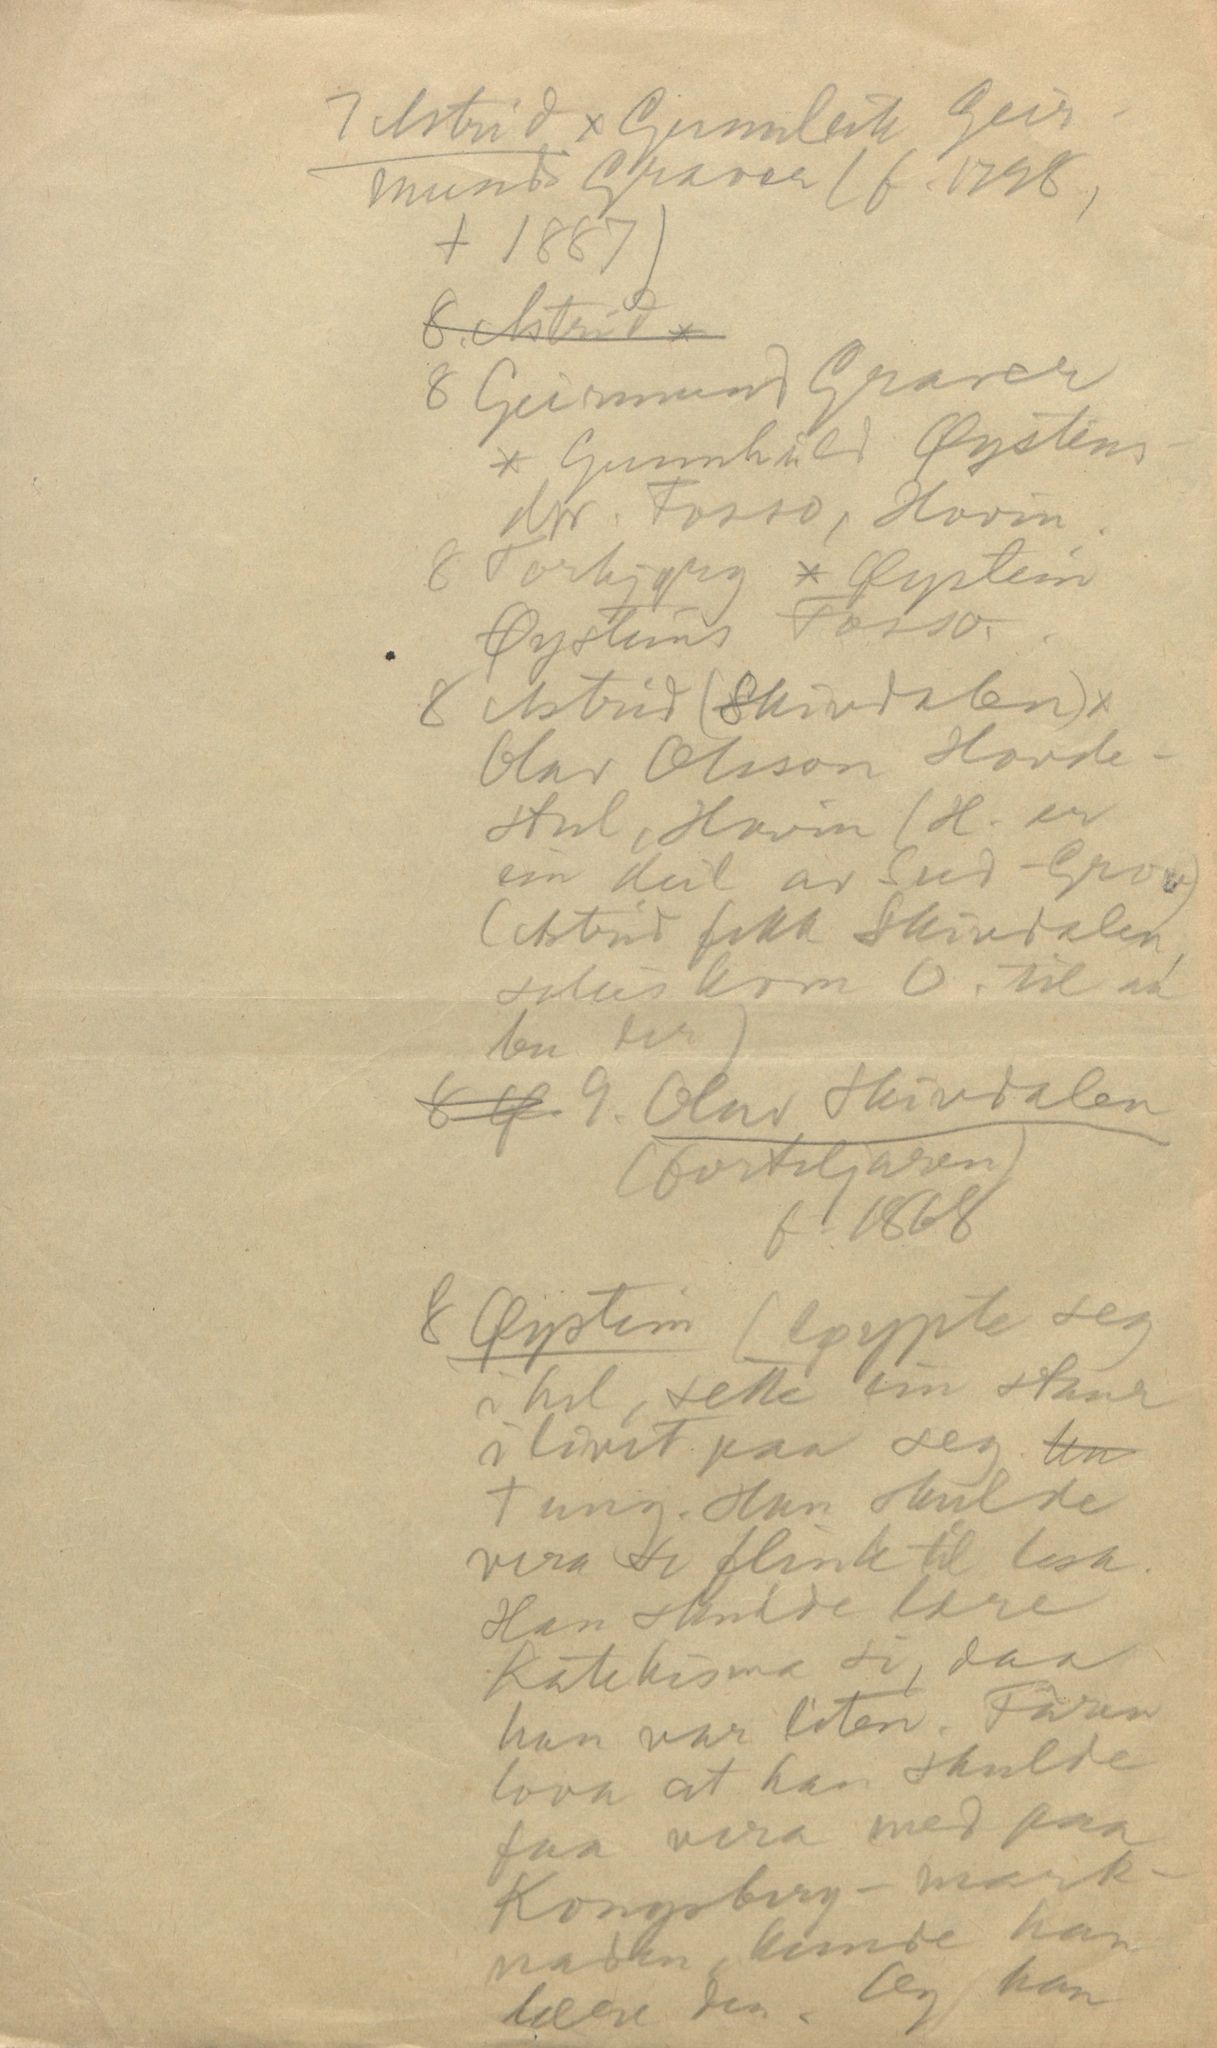 7 Astrid x Gunnleik Geir-
munds Graver (f. 1798,
+ 1887)
8. Astrid x
8 Geirmund Graver
x Gunnhild Øysteins-
dtr. Fosso, Hovin.
8 Torbjørg x Øystein
Øysteins Fosso.
8 Astrid (Skirvdalen) x
Olav Olsson Hovde-
stul, Hovin (H. er
ein deil av Sud-Grov)
(Astrid fekk Skirvdalen,
soleis kom O. til aa
bu der)
8 9. Olav Skirvdalen
(Forteljaren)
f. 1868
8 Øystein (Løypte seg
ihel, sette ein staur
i livet paa seg.
+ ung. Han skulde
vera so flink til lesa.
Han skulde lære
Katekisma si, daa
han var liten. Faren
lova at han skulde
faa vera med paa
Kongsberg-mark-
naden, kunde han
lære den. Og han